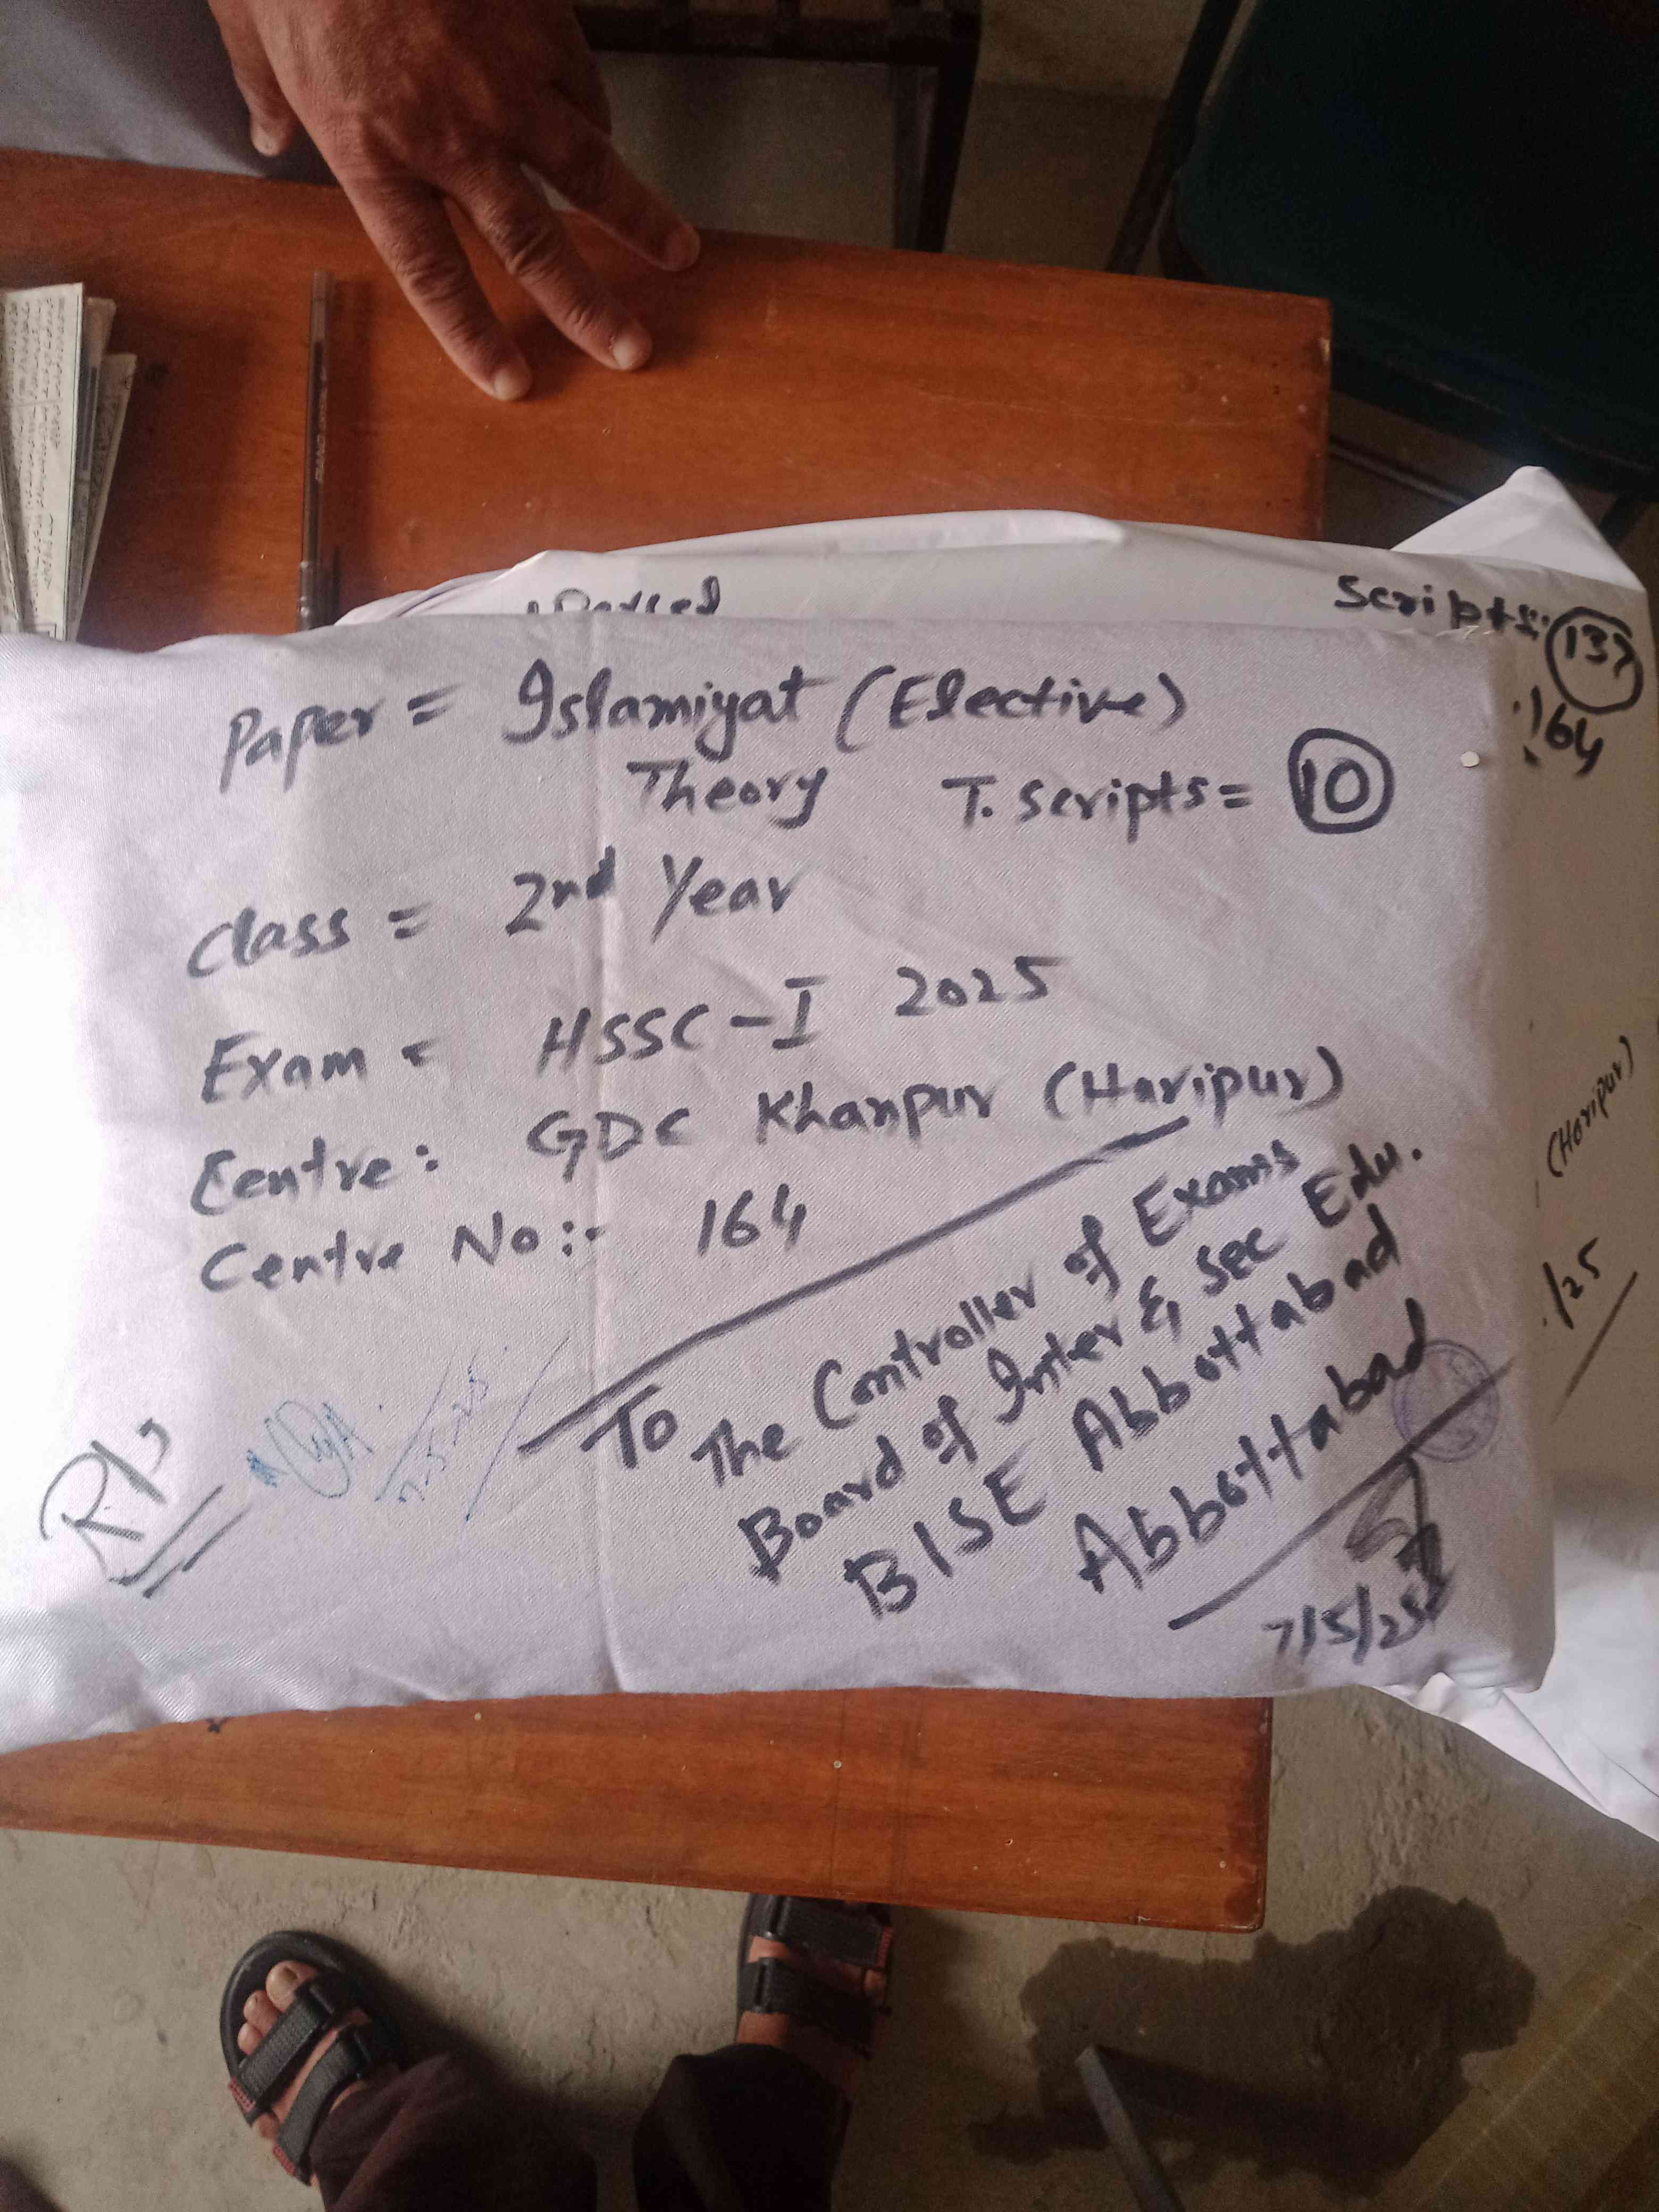 Parcel
Scripts: 137
164
Paper = Islamiyat (Elective)
Theory T. Scripts = 10
Class = 2nd Year
Exam = HSSC-I 2025
Centre: GDC Khanpur (Haripur)
Centre No:- 164
To
The Controller of Exams
Board of Inter & Sec Edu.
BISE Abbottabad
Abbottabad
7/5/25
7-5-25
(Haripur)
/25